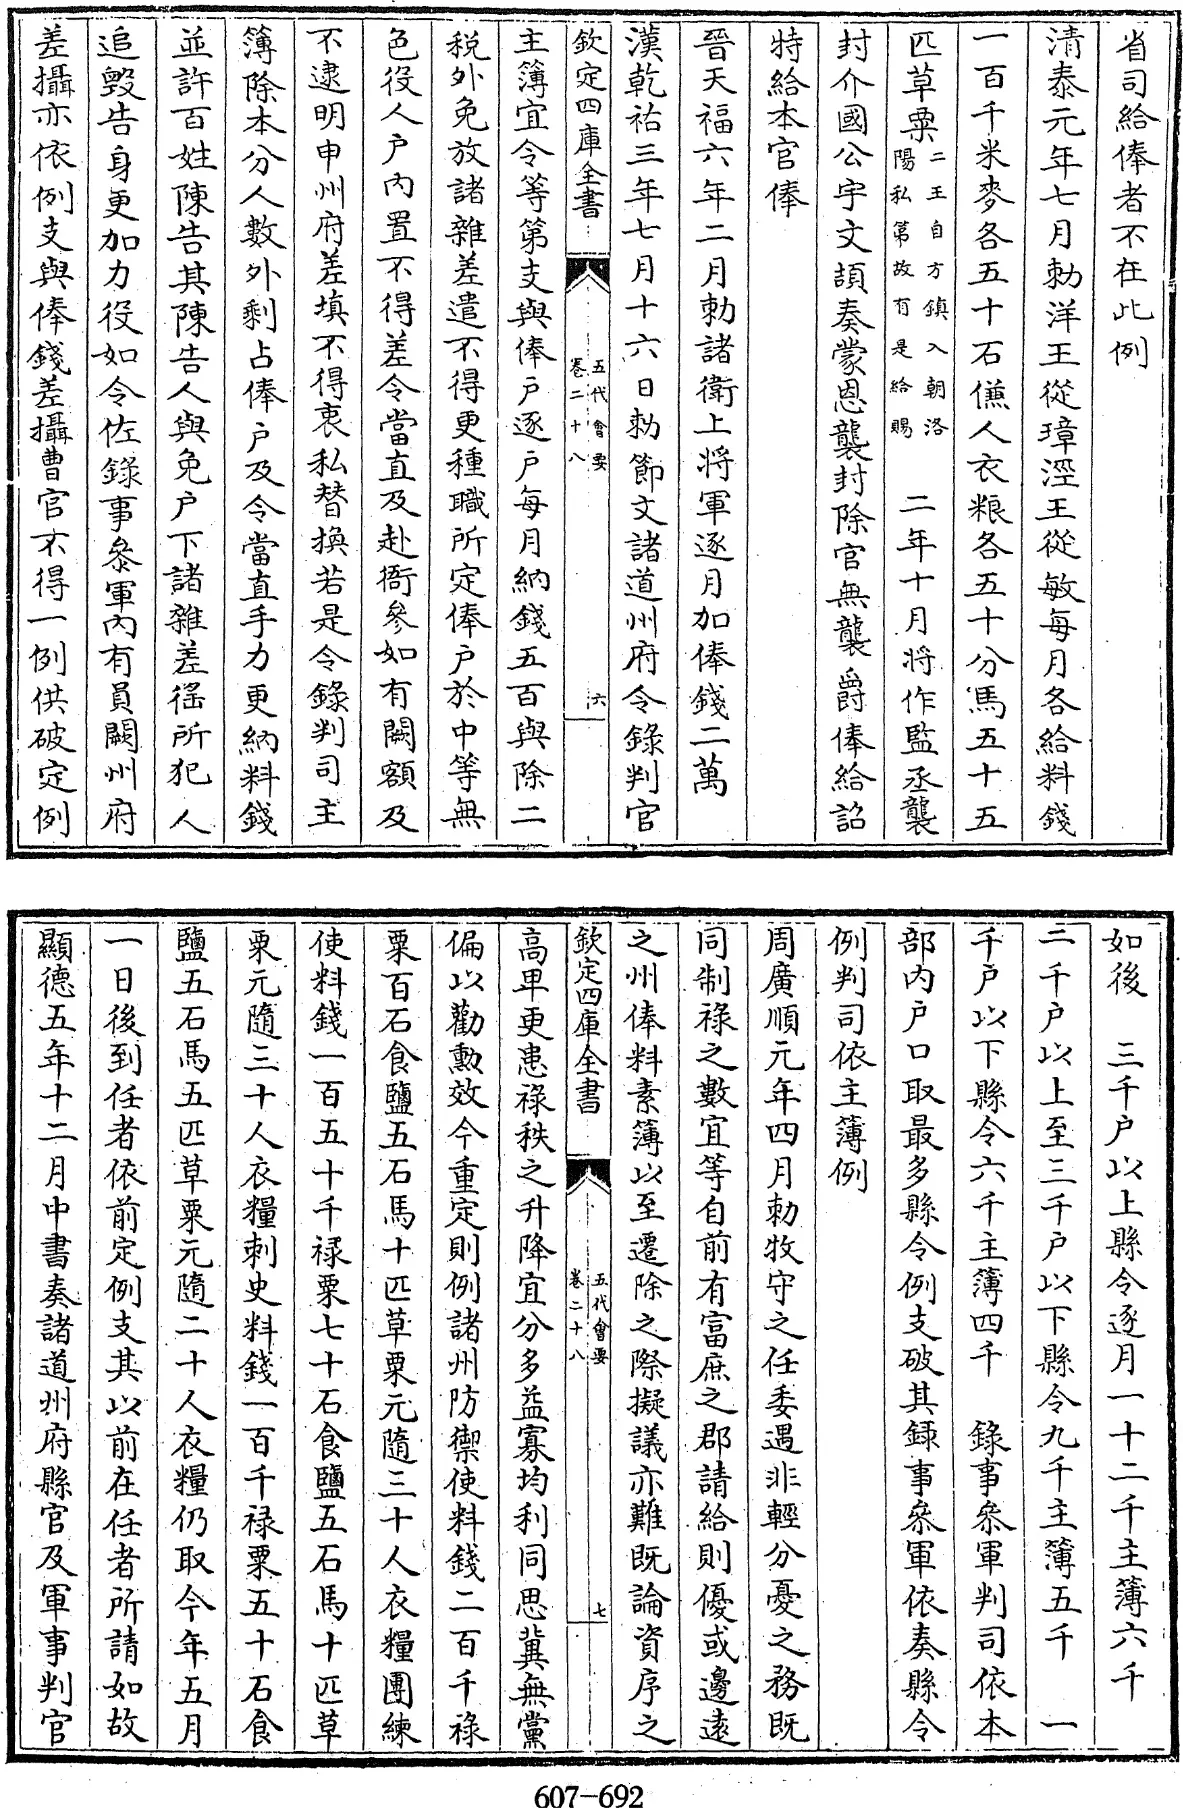 省司給俸者不在此例
清泰元年七月勅洋王從璋涇王從敏每月各給料錢
一百千米麥各五十石傔人衣粮各五十分馬五十五
匹草粟二王自方鎮入朝洛陽私第故有是給賜　二年十月將作監丞襲
封介國公宇文頡奏蒙恩襲封除官無襲爵俸給詔
特給本官俸
晉天福六年二月勅諸衛上將軍逐月加俸錢二萬
漢乾祐三年七月十六日勅節文諸道州府令錄判官
欽定四庫全書　五代會要卷二十八　六
主簿宜令等第支與俸戶逐戶每月納錢五百與除二
稅外免放諸雜差遣不得更種職所定俸戶於中等無
色役人戶內置不得差令當直及赴衙參如有闕額及
不逮明申州府差填不得衷私替換若是令錄判司主
簿除本分人數外剩占俸戶及令當直手力更納料錢
並許百姓陳告其陳告人與免戶下諸雜差徭所犯人
追毀告身更加力役如令佐錄事叅軍內有員闕州府
差攝亦依例支與俸錢差攝曹官不得一例供破定例
如後　三千戶以上縣令逐月一十二千主簿六千
二千戶以上至三千戶以下縣令九千主簿五千　一
千戶以下縣令六千主簿四千　錄事叅軍判司依本
部內戶口取最多縣令例支破其錄事叅軍依奏縣令
例判司依主簿例
周廣順元年四月勅牧守之任委遇非輕分憂之務既
同制祿之數宜等自前有富庶之郡請給則優或邊遠
之州俸料素簿以至遷除之際擬議亦難既論資序之
欽定四庫全書　五代會要卷二十八　七
高卑更患祿秩之升降宜分多益寡均利同思冀無黨
偏以勸勲效今重定則例諸州防禦使料錢二百千祿
粟百石食鹽五石馬十匹草粟元隨三十人衣糧團練
使料錢一百五十千祿粟七十石食鹽五石馬十匹草
粟元隨三十人衣糧刺史料錢一百千祿粟五十石食
鹽五石馬五匹草粟元隨二十人衣糧仍取今年五月
一日後到任者依前定例支其以前在任者所請如故
顯德五年十二月中書奏諸道州府縣官及軍事判官
607-692